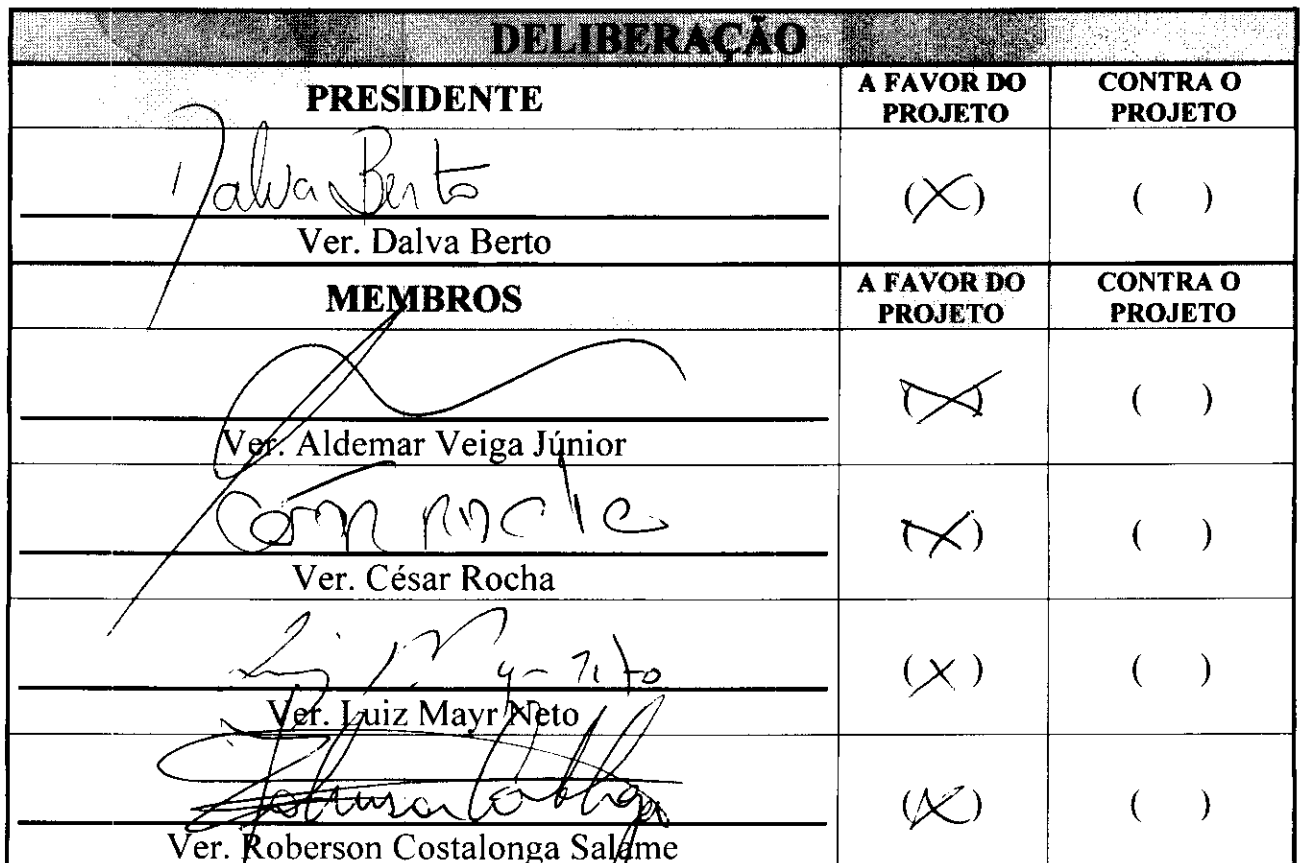 DELIBERAÇÃO
PRESIDENTE
A FAVOR DO PROJETO
CONTRA O PROJETO
Dalva Berto
(X)
( )
Ver. Dalva Berto
MEMBROS
A FAVOR DO PROJETO
CONTRA O PROJETO
(X)
( )
Ver. Aldemar Veiga Júnior
(X)
( )
Ver. César Rocha
(X)
( )
Ver. Luiz Mayr Neto
(X)
( )
Ver. Roberson Costalonga Salame